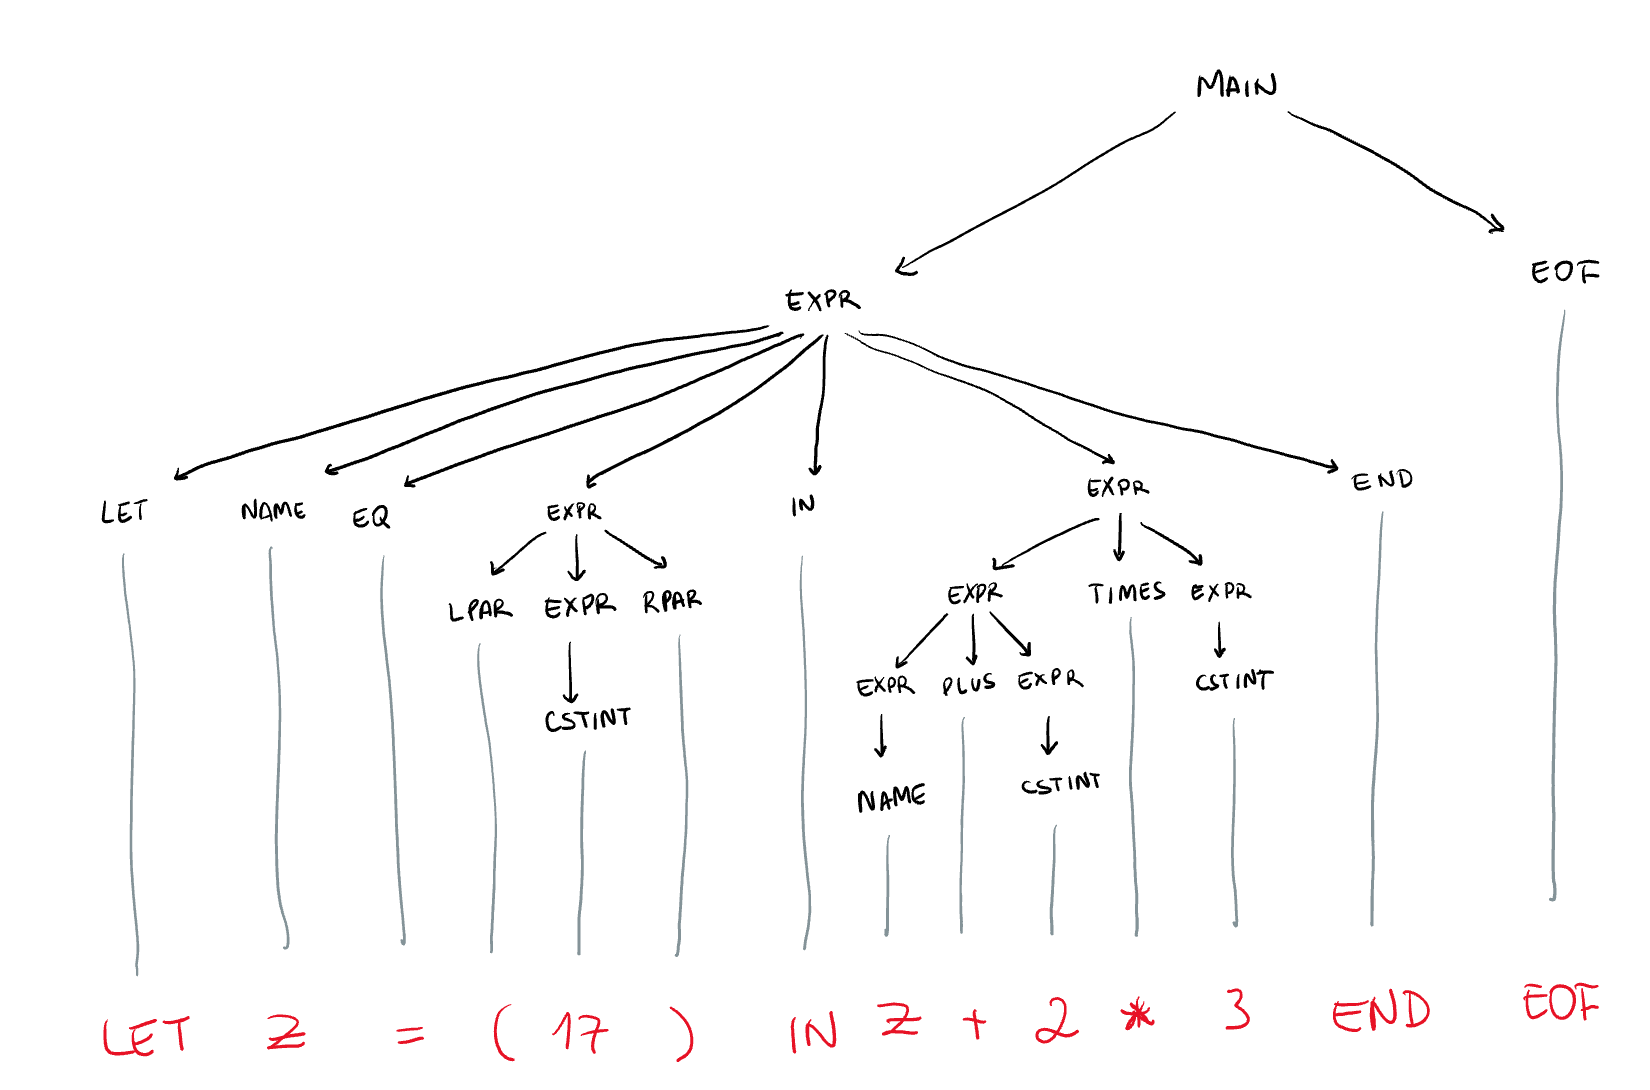 MAIN
EOF
EXPR
LET NAME EQ EXPR IN EXPR END
LPAR EXPR RPAR EXPR TIMES EXPR
CSTINT EXPR PLUS EXPR CSTINT
NAME CSTINT
LET Z = ( 17 ) IN Z + 2 * 3 END EOF